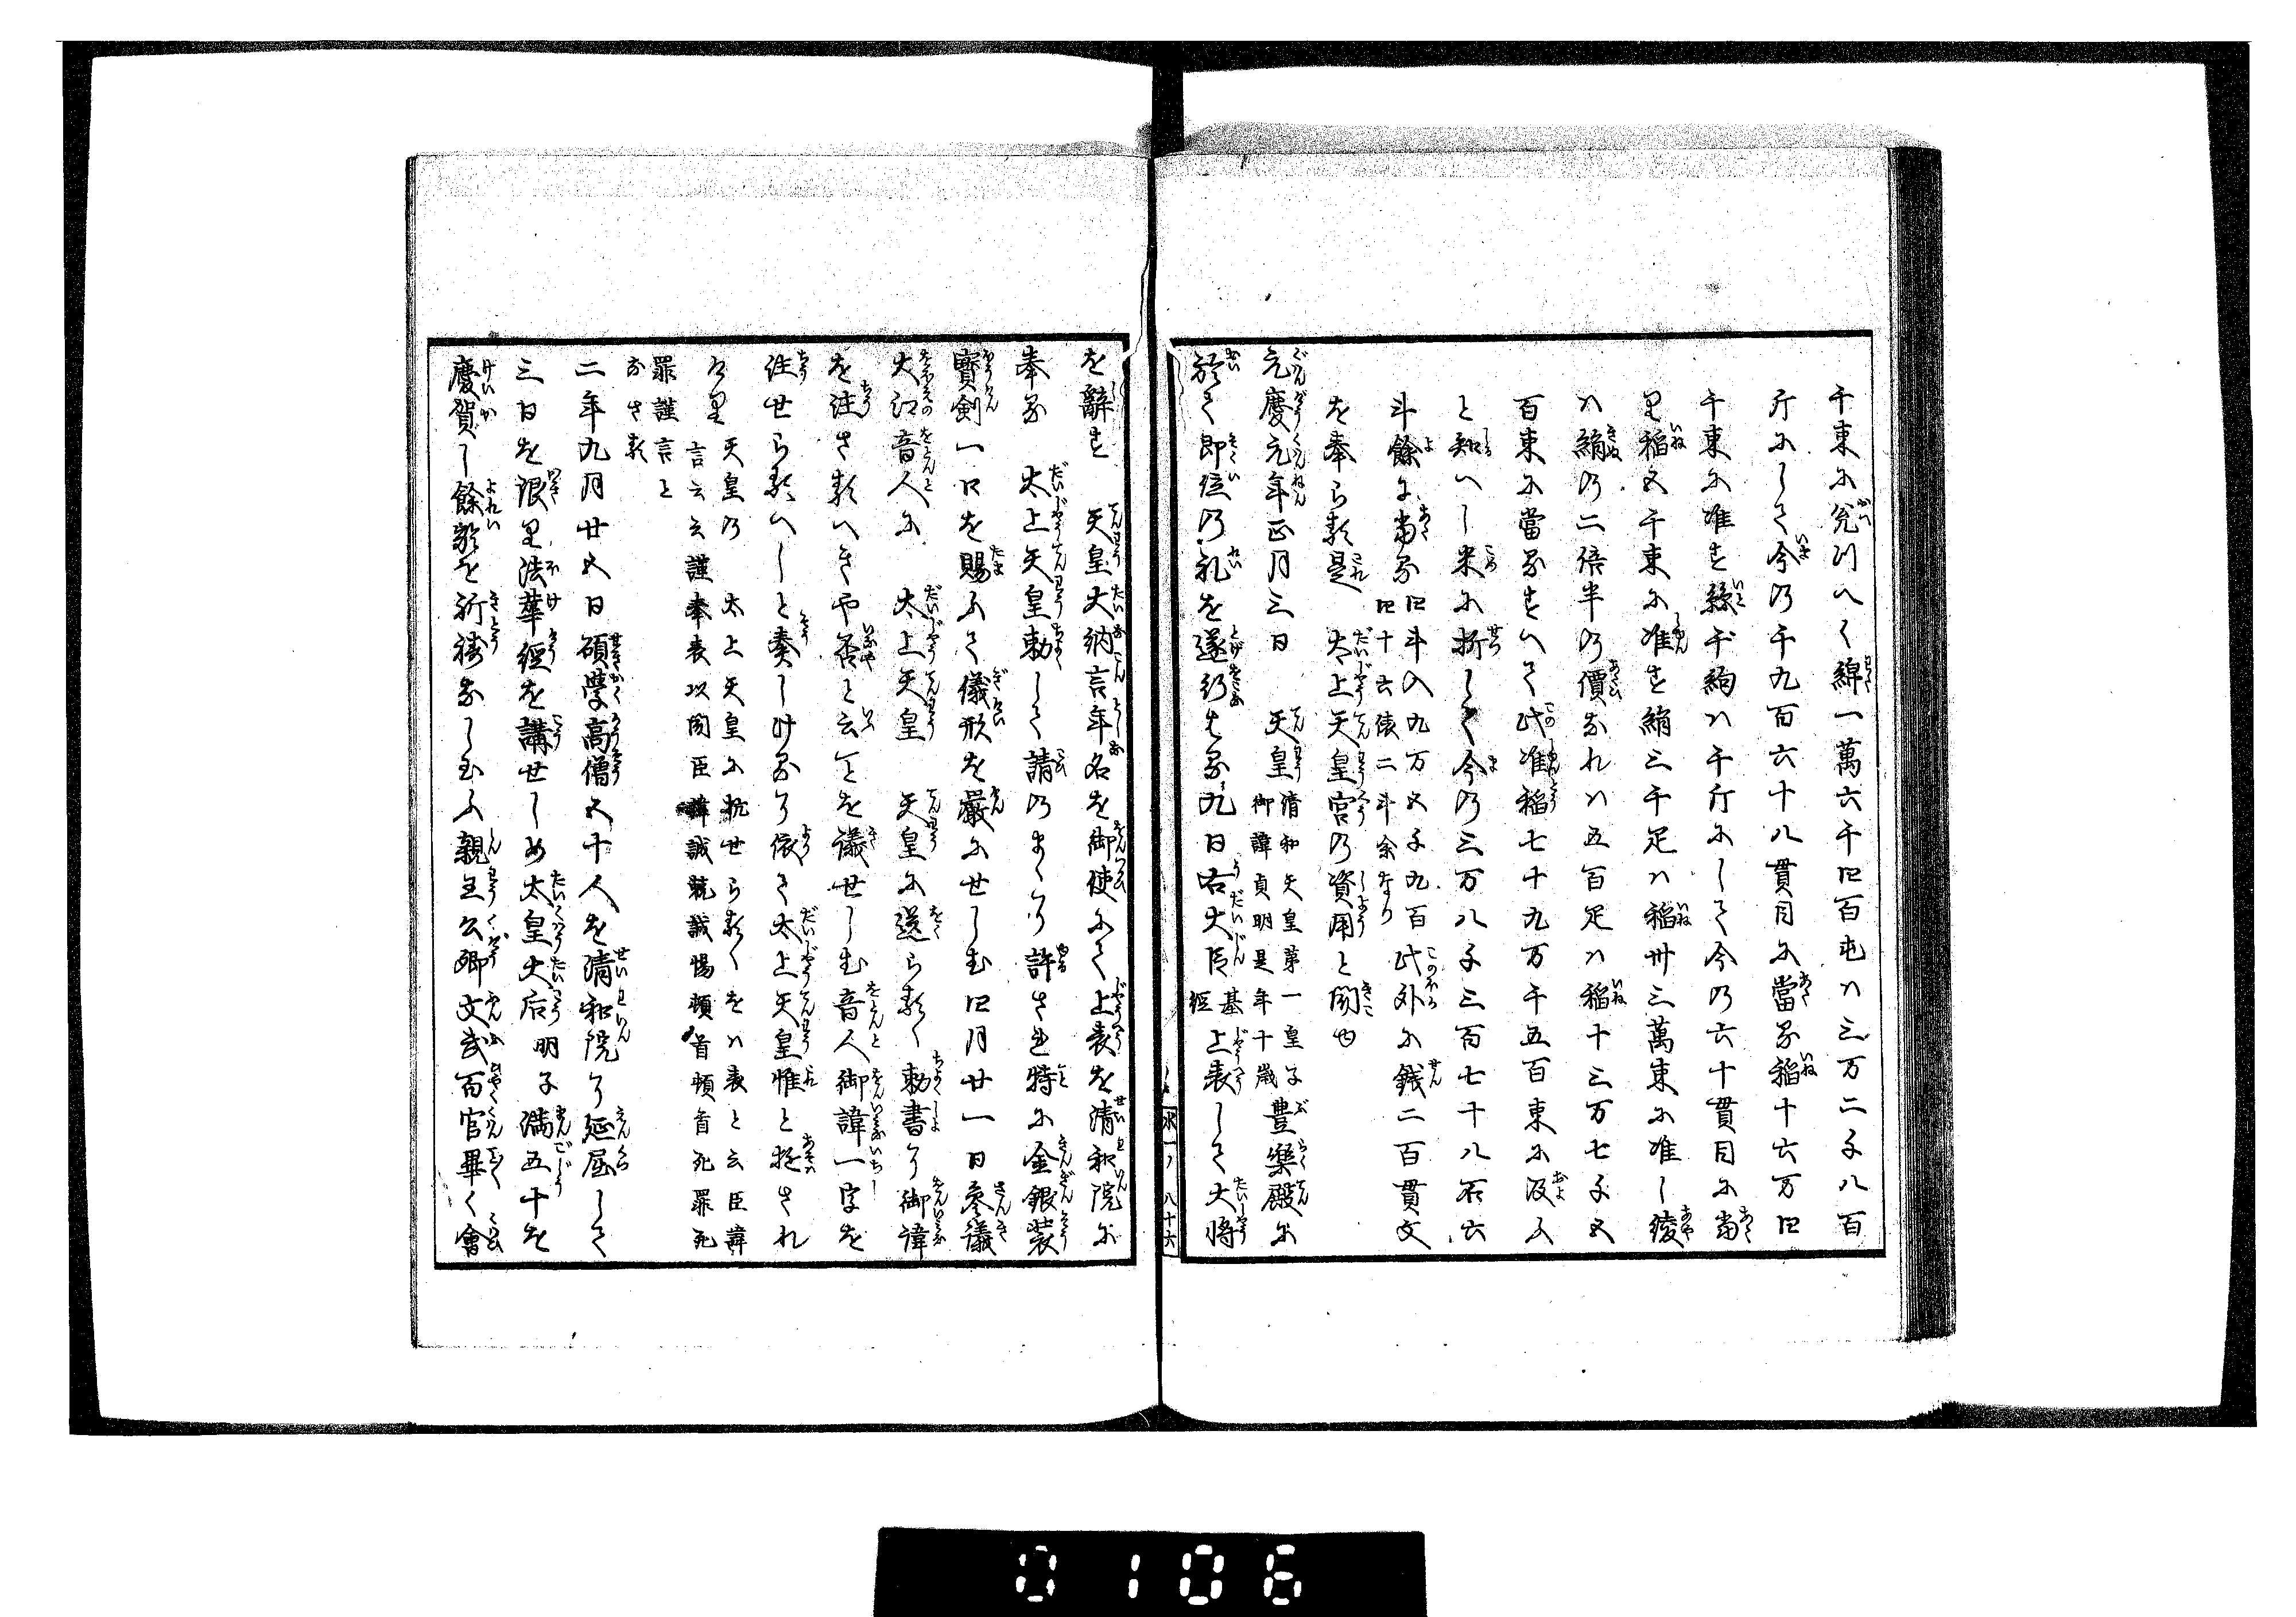 千束に充川へく綿一萬六千四百屯ハ三万二千八百
斤にして今の千九百六十八貫目に當る稲十六万四
千束に准す絲千絇ハ千斤にして今の六十貫目に當
り稲五千束に准す絹三千疋ハ稲卅三萬束に准し綾
ハ絹の二倍半の價なれハ五百疋ハ稲十三万七千五
百束に當るすへて此准稲七十九万千五百束に及ふ
と知へし米に折して今の三万八千三百七十八石六
斗餘に當る四斗入九万五千九百四十六俵二斗余なり此外に銭二百貫文
を奉らる是太上天皇宮の資用と聞ゆ
元慶元年正月三日 天皇清和天皇第一皇子御諱貞明是年十歳豊樂殿に
於て即位の礼を遂行せる九日右大臣基經上表して大將
水一ノ 八十六
を辭す 天皇大納言年名を御使にて上表を清和院に
奉る 太上天皇勅して請のまゝに許され特に金銀装
寳剣一口を賜ふて儀形を嚴にせしむ四月廿一日参議
大江音人に 太上天皇 天皇に送らるゝ勅書に御諱
を注さるへきや否と云ことを議せしむ音人御諱一字を
注せらるへしと奏しけるに依て太上天皇惟と題され
たり 天皇の 太上天皇に抗せらるゝをハ表と云臣諱
言云云謹奉表以聞臣諱誠兢誠惕頓首頓首死罪死
罪謹言と
なさる
二年九月廿五日碩學高僧五十人を清和院に延屈して
三日を限り法華經を講せしめ太皇大后明子満五十を
慶賀し餘齡を祈祷なし玉ふ親王公卿文武百官畢く會
けいか よれい きとう しんわう くぎやう ぶんぶ ひやくくわん